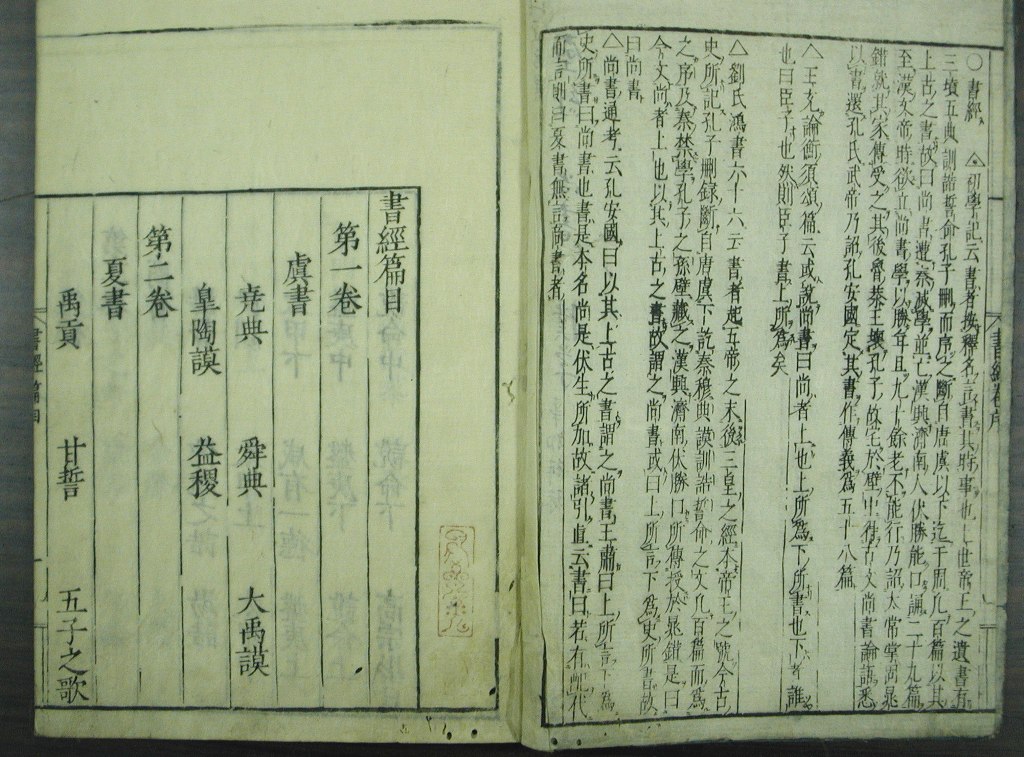 ○書經 △初學記云書者按釋名言書其時事也上世帝王之遺書有
三墳五典訓誥誓命孔子刪而序之斷自唐虞以下迄于周凡百篇以其
上古之書故曰尚書遭秦滅學並亡漢興濟南人伏勝能口誦二十九篇
至漢文帝時欲立尚書學以勝年且九十餘老不能行乃詔太常掌故晁
錯就其家傳受之其後魯恭王壞孔子故宅於壁中得古文尚書論語悉
以書還孔氏武帝乃詔孔安國定其書作傳義為五十八篇
△王充論衡須頌篇云或說尚書曰尚者上也上所為下所書也下者誰
也曰臣子也然則臣子書上所為矣
△劉氏鴻書六十六云書者起五帝之末後三皇之經本帝王之號今古
史所記孔子刪録斷自唐虞下訖秦穆典謨訓誥誓命之文凡百篇而為
之序及秦禁學孔子之孫壁藏之漢興濟南伏勝口所傳授於晁錯是曰
今文尚者上也以其上古之書故謂之尚書或曰上所言下為史所書故
曰尚書
△尚書通考云孔安國曰以其上古之書謂之尚書王肅曰上所言下為
史所書曰尚書也書是本名尚是伏生所加故諸引直云書曰若有配代
而言則曰夏書無言尚書者
書經卷序
書經篇目
第一卷
虞書
堯典 舜典 大禹謨
皐陶謨 益稷
第二卷
夏書
禹貢 甘誓 五子之歌
書經篇目